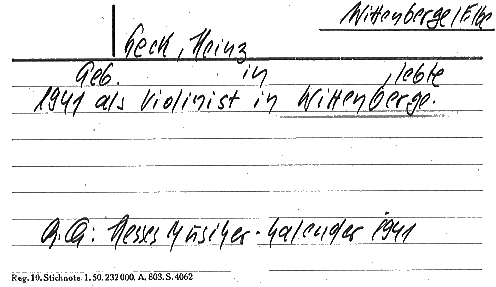 Wittenberge/Elbe
Geck, Heinz
Geb. in , lebte
1941 als Violinist in Wittenberge.
Hesses Musiker-Kalender 1941
Reg. 10. Stichnote 1. 50. 232000. A. 803. S. 4062